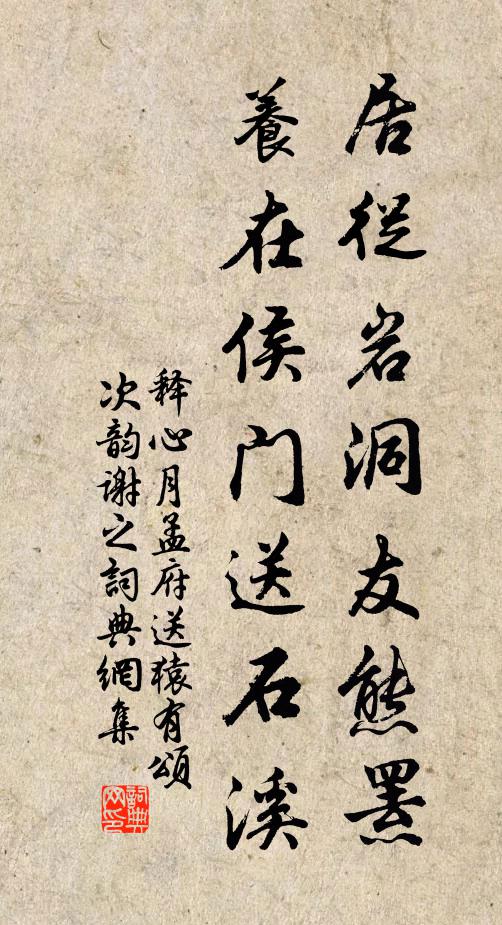 居從岩洞友熊羆
養在侯门送石溪
释心月孟府送猿有頌
次韵谢之詞典網集
詞典网印